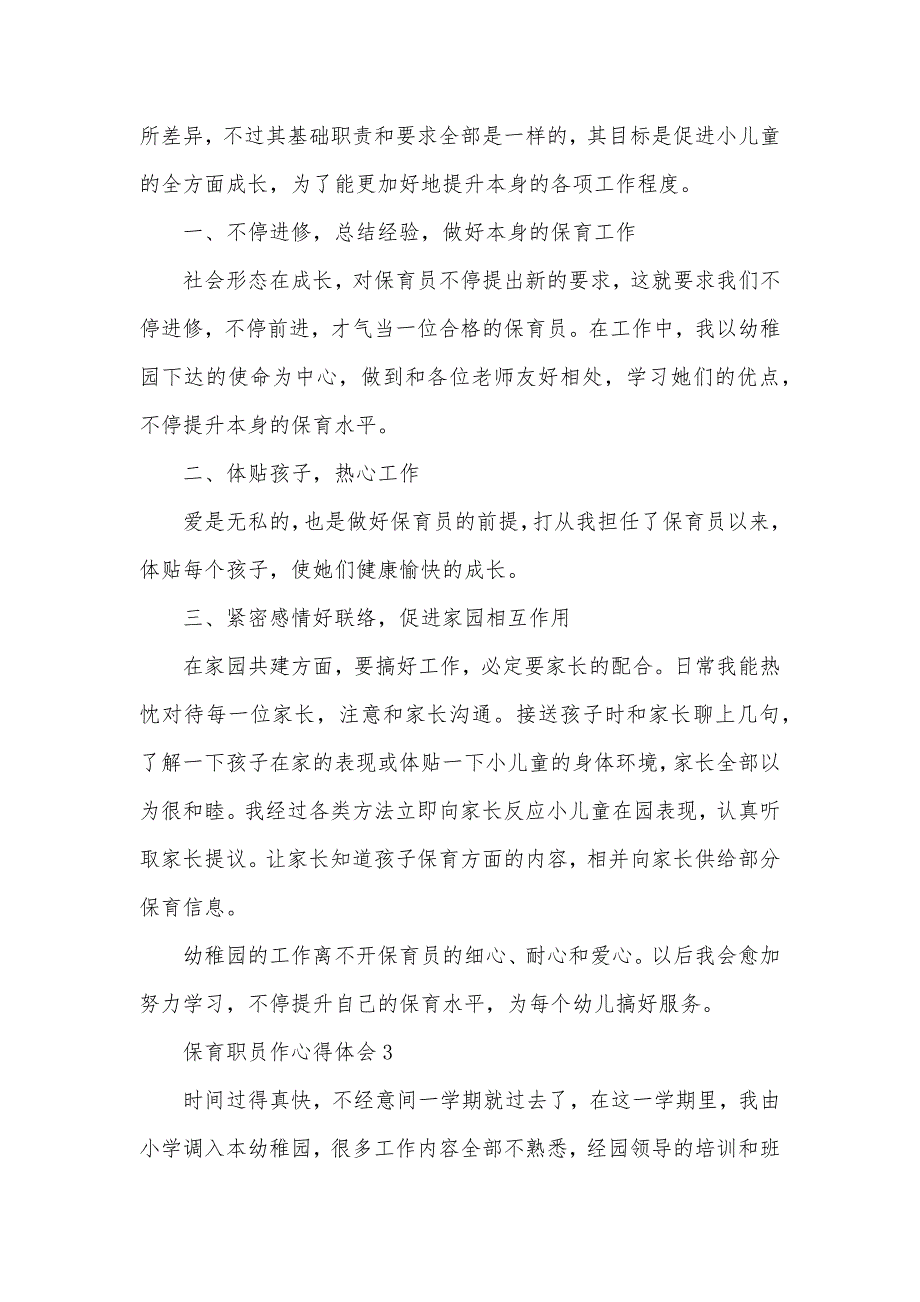 所差异，不过其基础职责和要求全部是一样的，其目标是促进小儿童
的全方面成长，为了能更加好地提升本身的各项工作程度。
一、不停进修，总结经验，做好本身的保育工作
社会形态在成长，对保育员不停提出新的要求，这就要求我们不
停进修，不停前进，才气当一位合格的保育员。在工作中，我以幼稚
园下达的使命为中心，做到和各位老师友好相处，学习她们的优点，
不停提升本身的保育水平。
二、体贴孩子，热心工作
爱是无私的，也是做好保育员的前提，打从我担任了保育员以来，
体贴每个孩子，使她们健康愉快的成长。
三、紧密感情好联络，促进家园相互作用
在家园共建方面，要搞好工作，必定要家长的配合。日常我能热
忱对待每一位家长，注意和家长沟通。接送孩子时和家长聊上几句，
了解一下孩子在家的表现或体贴一下小儿童的身体环境，家长全部以
为很和睦。我经过各类方法立即向家长反应小儿童在园表现，认真听
取家长提议。让家长知道孩子保育方面的内容，相并向家长供给部分
保育信息。
幼稚园的工作离不开保育员的细心、耐心和爱心。以后我会愈加
努力学习，不停提升自己的保育水平，为每个幼儿搞好服务。
保育职员作心得体会3
时间过得真快，不经意间一学期就过去了，在这一学期里，我由
小学调入本幼稚园，很多工作内容全部不熟悉，经园领导的培训和班